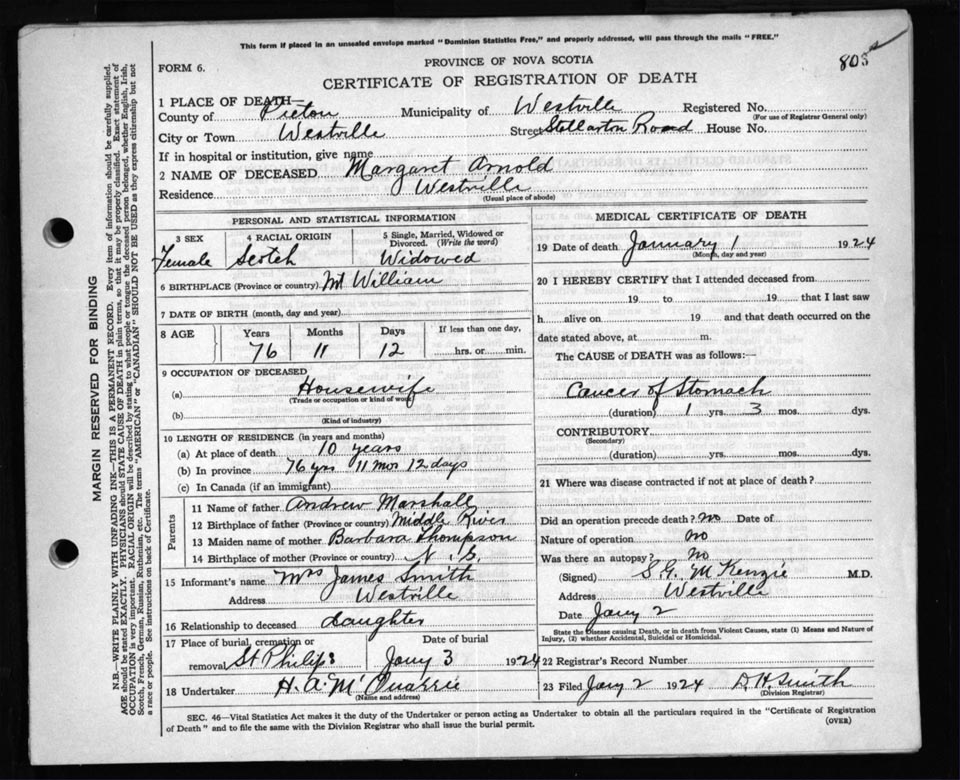 This form if placed in an unsealed envelope marked "Dominion Statistics Free," and properly addressed, will pass through the mails "FREE."
805
PROVINCE OF NOVA SCOTIA
FORM 6.
CERTIFICATE OF REGISTRATION OF DEATH
1 PLACE OF DEATH—
County of Pictou Municipality of Westville Registered No.
(For use of Registrar General only)
City or Town Westville Street Stellarton Road House No.
If in hospital or institution, give name
2 NAME OF DECEASED Margaret Arnold
Residence Westville
(Usual place of abode)
PERSONAL AND STATISTICAL INFORMATION
3 SEX 4 RACIAL ORIGIN 5 Single, Married, Widowed or Divorced. (Write the word)
Female Scotch Widowed
6 BIRTHPLACE (Province or country) Mt William
7 DATE OF BIRTH (month, day and year)
8 AGE Years Months Days If less than one day,
76 11 12 hrs. or min.
9 OCCUPATION OF DECEASED
(a) Housewife
(Trade or occupation or kind of work)
(b)
(Kind of industry)
10 LENGTH OF RESIDENCE (in years and months)
(a) At place of death 10 years
(b) In province 76 yrs 11 mos 12 days
(c) In Canada (if an immigrant)
Parents
11 Name of father Andrew Marshall
12 Birthplace of father (Province or country) Middle River
13 Maiden name of mother Barbara Thompson
14 Birthplace of mother (Province or country) N. S.
15 Informant's name Mrs James Smith
Address Westville
16 Relationship to deceased Daughter
17 Place of burial, cremation or removal St Philips
Date of burial Jany 3 1924
18 Undertaker H. A. McQuarrie
(Name and address)
MEDICAL CERTIFICATE OF DEATH
19 Date of death January 1 1924
(Month, day and year)
20 I HEREBY CERTIFY that I attended deceased from
19 to 19 that I last saw
h alive on 19 and that death occurred on the
date stated above, at m.
The CAUSE of DEATH was as follows:—
Cancer of Stomach
(duration) 1 yrs. 3 mos. dys.
CONTRIBUTORY
(Secondary)
(duration) yrs. mos. dys.
21 Where was disease contracted if not at place of death?
Did an operation precede death? No Date of
Nature of operation No
Was there an autopsy? No
(Signed) S. G. McKenzie M.D.
Address Westville
Date Jany 2
State the Disease causing Death, or in death from Violent Causes, state (1) Means and Nature of
Injury, (2) whether Accidental, Suicidal or Homicidal.
22 Registrar's Record Number
23 Filed Jany 2 1924 D. H. Smith
(Division Registrar)
SEC. 46—Vital Statistics Act makes it the duty of the Undertaker or person acting as Undertaker to obtain all the particulars required in the "Certificate of Registration
of Death" and to file the same with the Division Registrar who shall issue the burial permit.
(OVER)
MARGIN RESERVED FOR BINDING
N.B.—WRITE PLAINLY WITH UNFADING INK—THIS IS A PERMANENT RECORD. Every item of information should be carefully supplied.
AGE should be stated EXACTLY. PHYSICIANS should STATE CAUSE OF DEATH in plain terms, so that it may be properly classified. Exact statement of
OCCUPATION is very important. RACIAL ORIGIN will be described by stating to what people or tongue the deceased person belonged, whether English, Irish,
Scotch, French, German, Russian, Ruthenian, etc. The terms "AMERICAN" or "CANADIAN" SHOULD NOT BE USED as they express citizenship but not
a race or people. See instructions on back of Certificate.